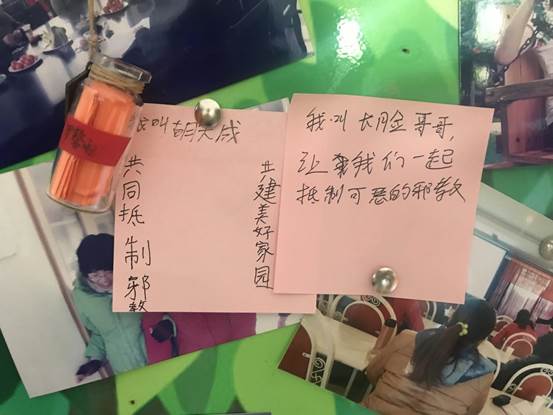 我叫胡天成
共同抵制邪教
共建美好家园
我叫大脸哥哥,
让我们一起
抵制可恶的邪教